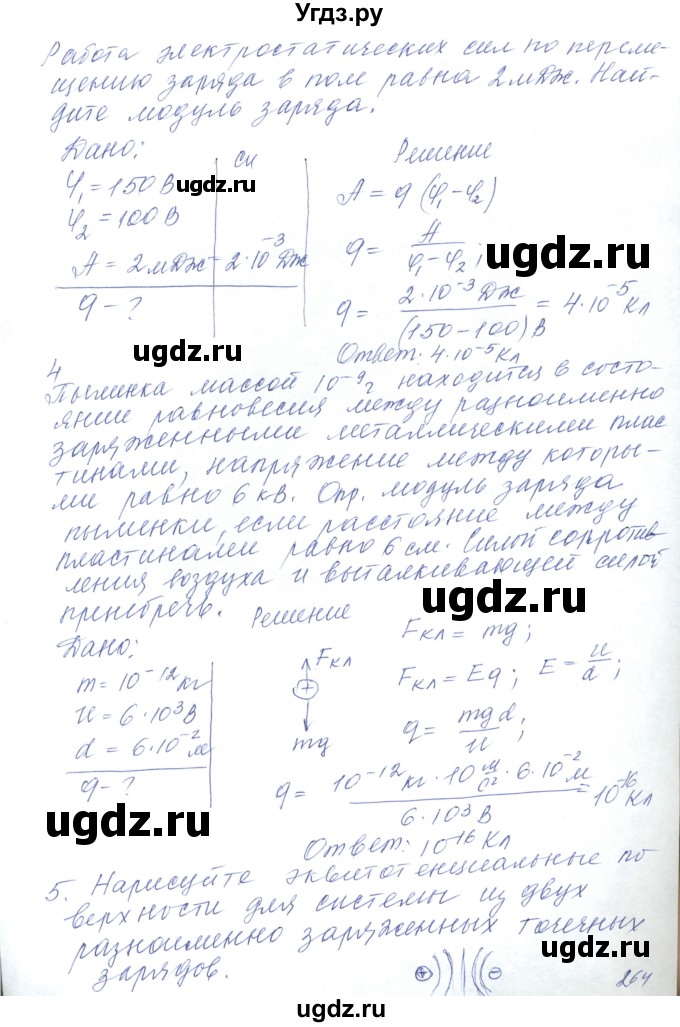 Угдз.ру
Работа электростатических сил по переме-
щению заряда в поле равна 2 мДж. Най-
дите модуль заряда.
Дано:
φ₁ = 150 В
φ₂ = 100 В
A = 2 мДж
q - ?
СИ
2·10⁻³ Дж
Решение
A = q (φ₁ - φ₂)
q = A / (φ₁ - φ₂);
q = 2·10⁻³ Дж / (150 - 100) В = 4·10⁻⁵ Кл
Ответ: 4·10⁻⁵ Кл
4
Пылинка массой 10⁻⁹ г находится в состо-
янии равновесия между разноименно
заряженными металлическими плас
тинами, напряжение между которы-
ми равно 6 кВ. Опр. модуль заряда
пылинки, если расстояние между
пластинами равно 6 см. Силой сопротив
ления воздуха и выталкивающей силой
пренебречь.
Решение
Дано:
m = 10⁻¹² кг
U = 6·10³ В
d = 6·10⁻² м
q - ?
Fкл
+
mg
Fкл = mg;
Fкл = Eq; E = U/d;
q = mgd / U;
q = 10⁻¹² кг · 10 м/с² · 6·10⁻² м / 6·10³ В = 10⁻¹⁶ Кл
Ответ: 10⁻¹⁶ Кл
5. Нарисуйте эквипотенциальные по
верхности для системы из двух
разноименно заряженных точечных
зарядов.
+ -
264
ugdz.ru
ugdz.ru
ugdz.ru
ugdz.ru
ugdz.ru
ugdz.ru
ugdz.ru
ugdz.ru